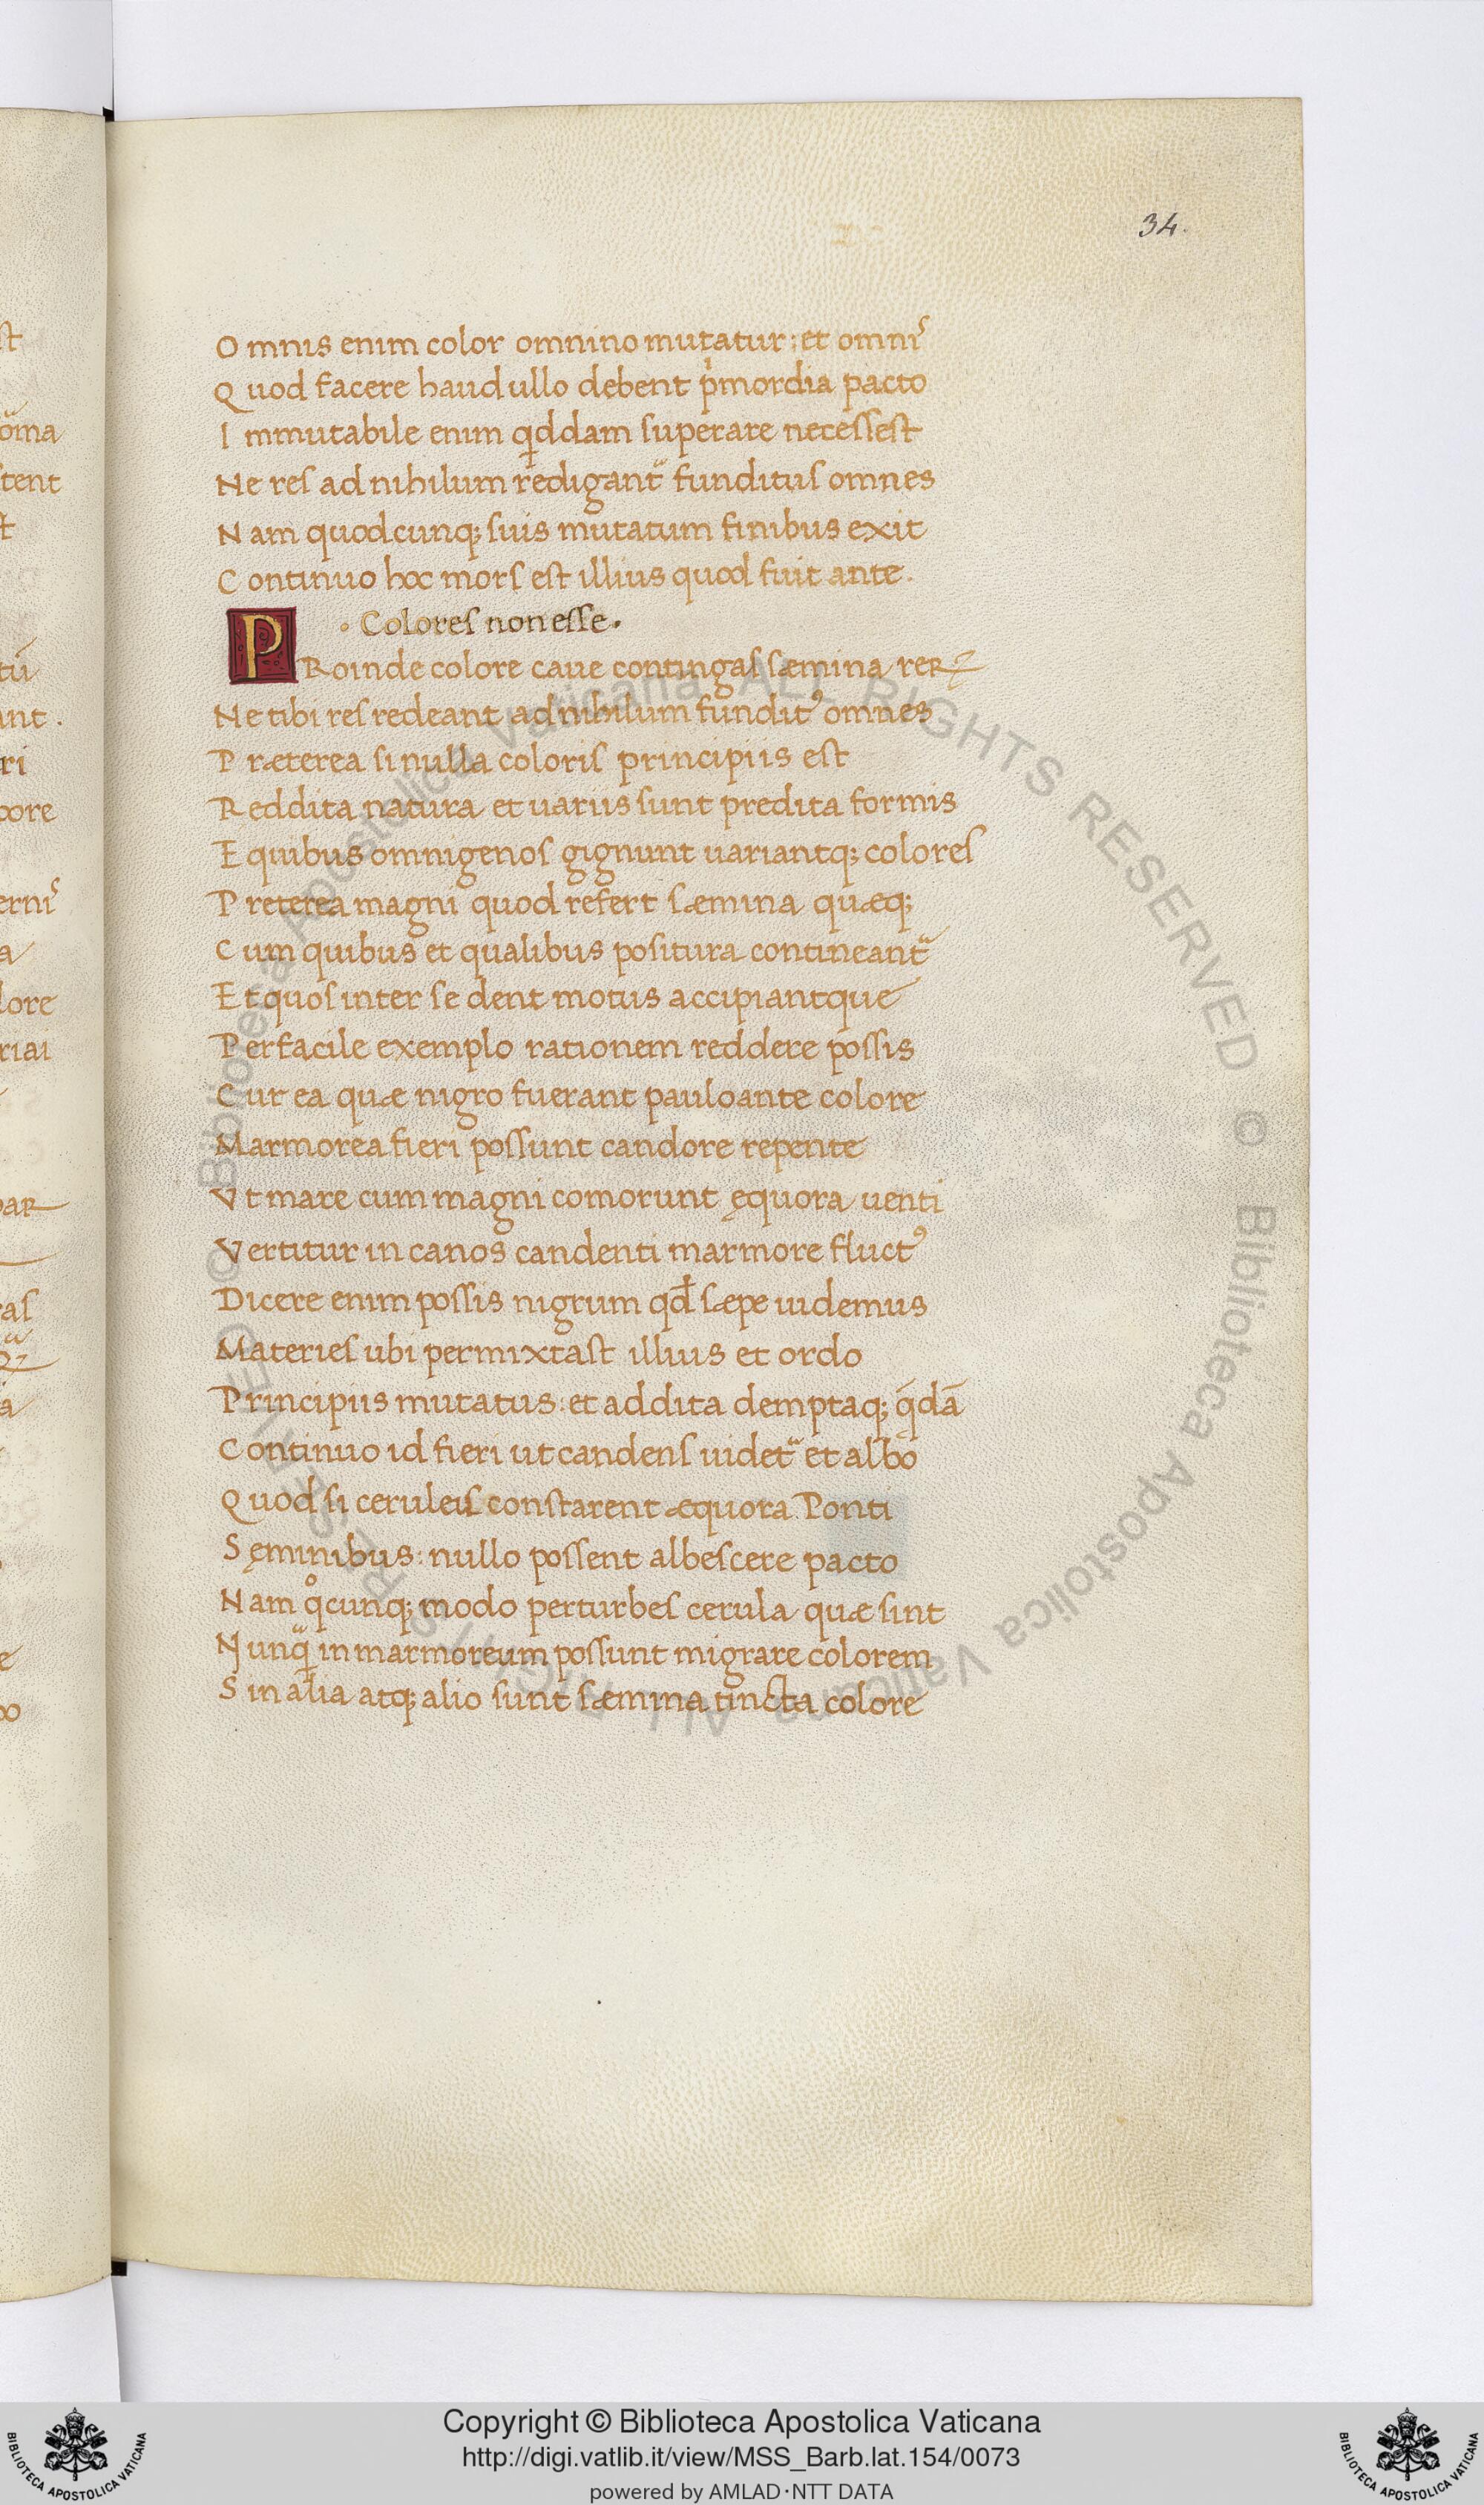 34.
Omnis enim color omnino mutatur: et omnis
Quod facere haud ullo debent pͥmordia pacto
Immutabile enim qͥddam superare necessest
Ne res ad nihilum redigantᷓ funditus omnes
Nam quodcunq; suis mutatum finibus exit
Continuo hoc mors est illius quod fuit ante.
· Colores non esse.
PRoinde colore caue contingas sæmina reꝝ
Ne tibi res redeant ad nihilum funditꝰ omnes
Præterea si nulla coloris principiis est
Reddita natura et uariis sunt predita formis
E quibus omnigenos gignunt uariantq; colores
Preterea magni quod refert sæmina quæq;
Cum quibus et qualibus positura contineantᷓ
Et quos inter se dent motus accipiantque
Perfacile exemplo rationem reddere possis
Cur ea quæ nigro fuerant pauloante colore
Marmorea fieri possunt candore repente
Vt mare cum magni comorunt ęquora uenti
Vertitur in canos candenti marmore fluctꝰ
Dicere enim possis nigrum qđ sæpe uidemus
Materies ubi permixtast illius et ordo
Principiis mutatus: et addita demptaq; q̄dā
Continuo id fieri ut candens uidetᷓ et albo
Quod si ceruleis constarent æquora Ponti
Sęminibus: nullo possent albescere pacto
Nam qͦcunq; modo perturbes cerula quæ sint
Nunqᷓ in marmoreum possunt migrare colorem
Sin alia atq; alio sunt sæmina tincta colore
Copyright © Biblioteca Apostolica Vaticana
http://digi.vatlib.it/view/MSS_Barb.lat.154/0073
powered by AMLAD·NTT DATA